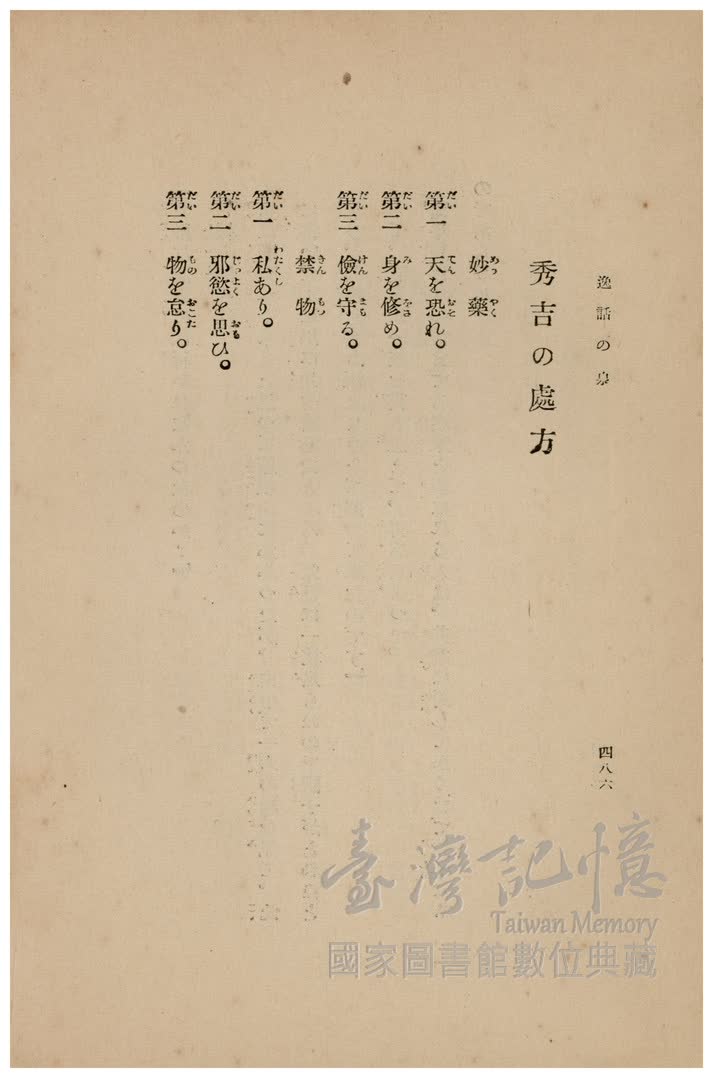 逸話の泉
四八六
秀吉の處方
妙藥
第一 天を恐れ。
第二 身を修め。
第三 儉を守る。
禁物
第一 私あり。
第二 邪慾を思ひ。
第三 物を怠り。
臺灣記憶
Taiwan Memory
國家圖書館數位典藏